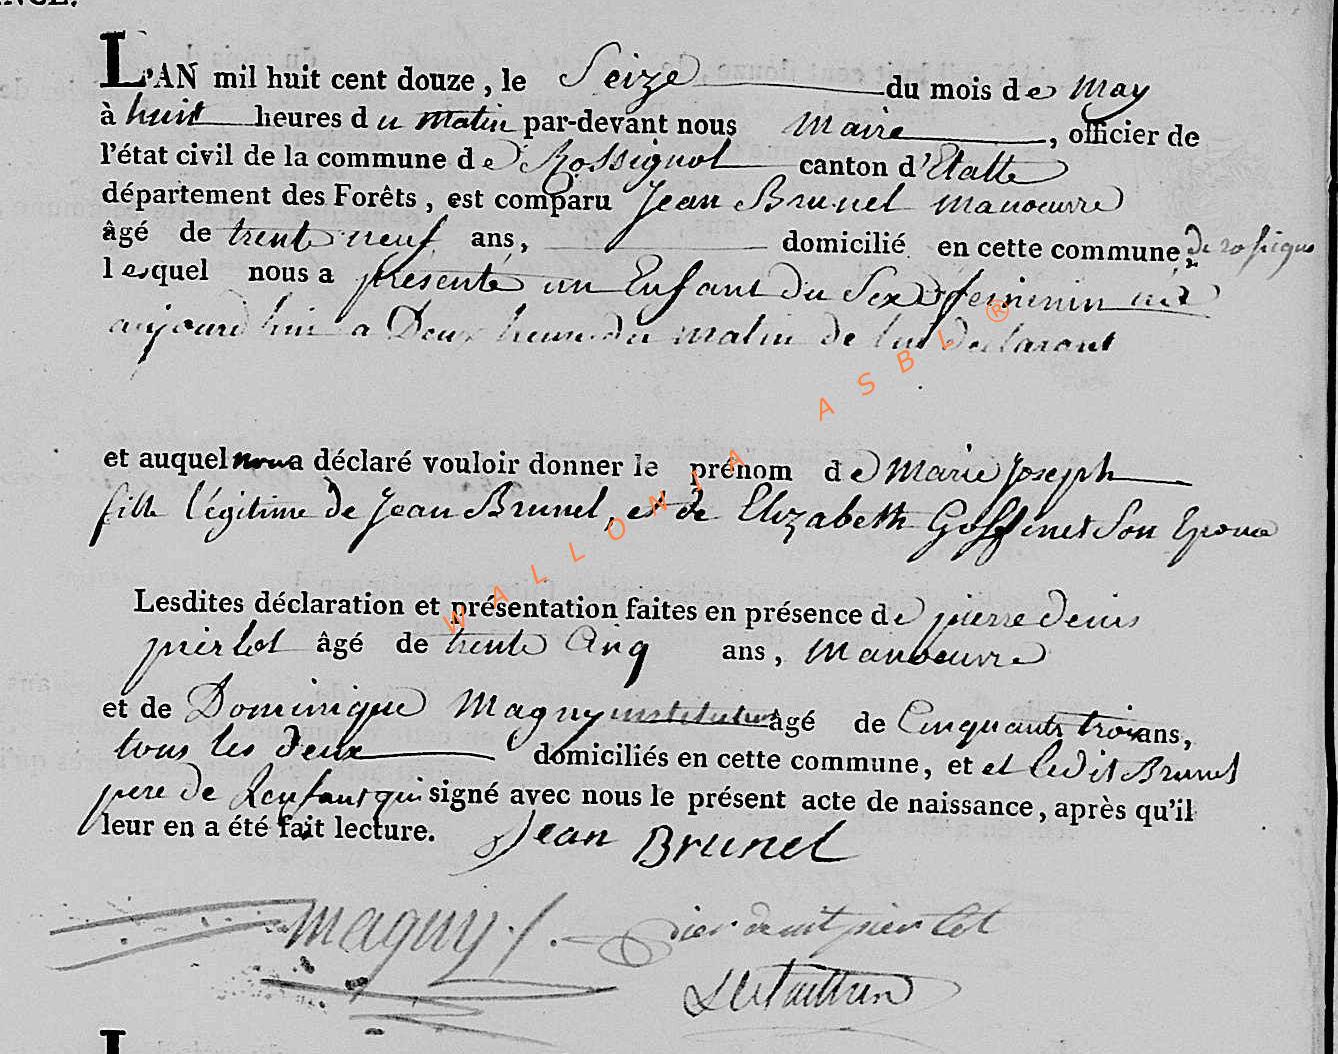 L'AN mil huit cent douze, le Seize du mois de May
à huit heures du matin par-devant nous Maire, officier de
l'état civil de la commune de Rossignol canton d'Etalle
département des Forêts, est comparu Jean Brunel manoeuvre
âgé de trente neuf ans, domicilié en cette commune de
lesquel nous a présenté un Enfant du Sexe feminin né
aujourdhui a Deux heures du matin de lui declarant
et auquel nous a déclaré vouloir donner le prénom de Marie Joseph
fille légitime de Jean Brunel, et de Elizabeth Goffinet Son Epouse
Lesdites déclaration et présentation faites en présence de pierre denis
pierlot âgé de trente cinq ans, Manoeuvre
et de Dominique Magny instituteur âgé de Cinquante trois ans,
tous les deux domiciliés en cette commune, et et ledit Brunel
pere de Lenfant qui signé avec nous le présent acte de naissance, après qu'il
leur en a été fait lecture. Jean Brunel
Magny
pierlot
WALLONIA ASBL ®